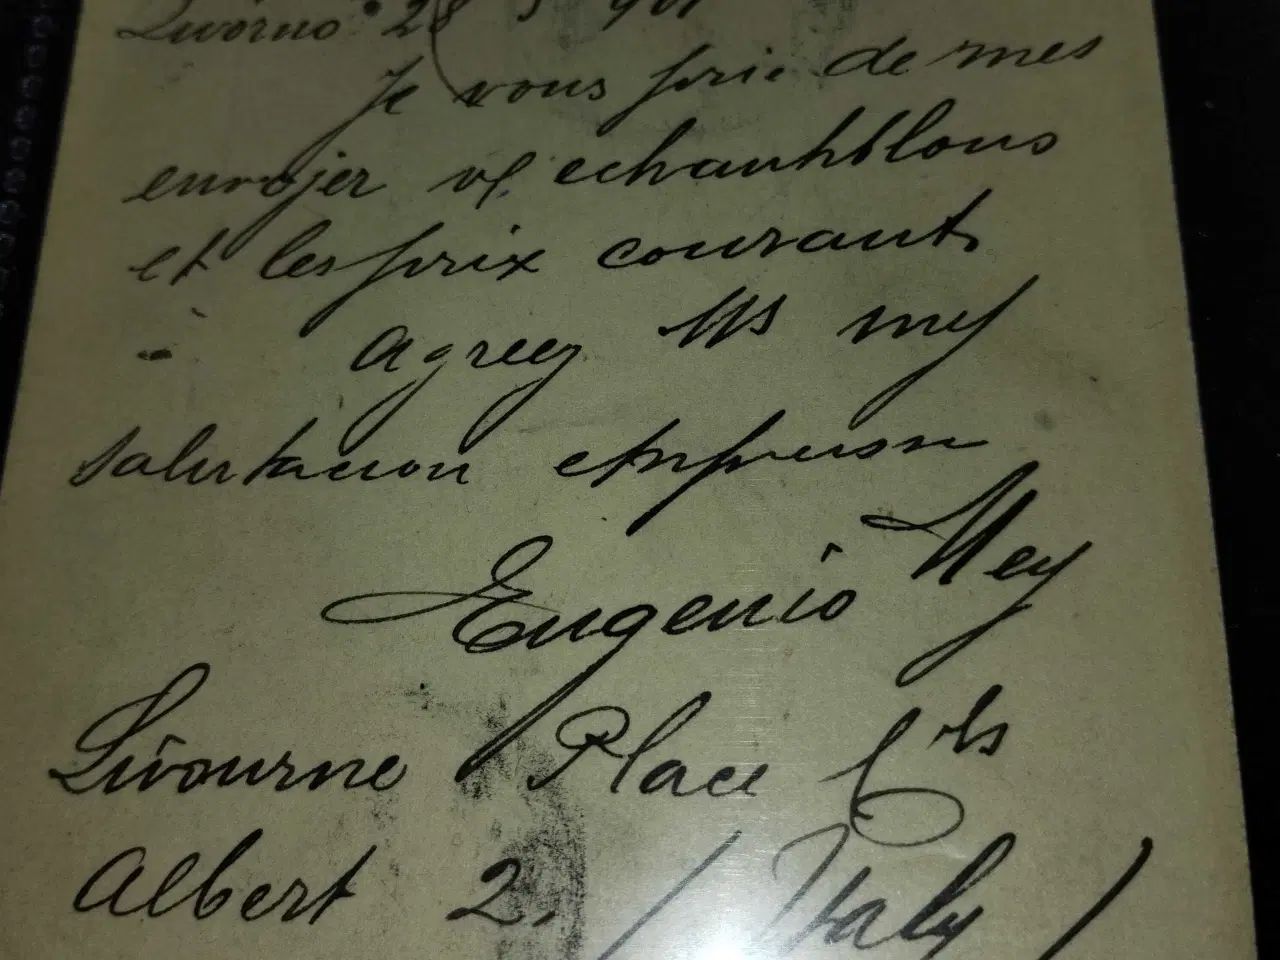 Livorno 28 3 901
Je vous prie de mes
envojer vs. echantillons
et les prix courants
agreez Ms mes
salutacion
Eugenio Mey
Livourne Place
Albert 2. (Italy)